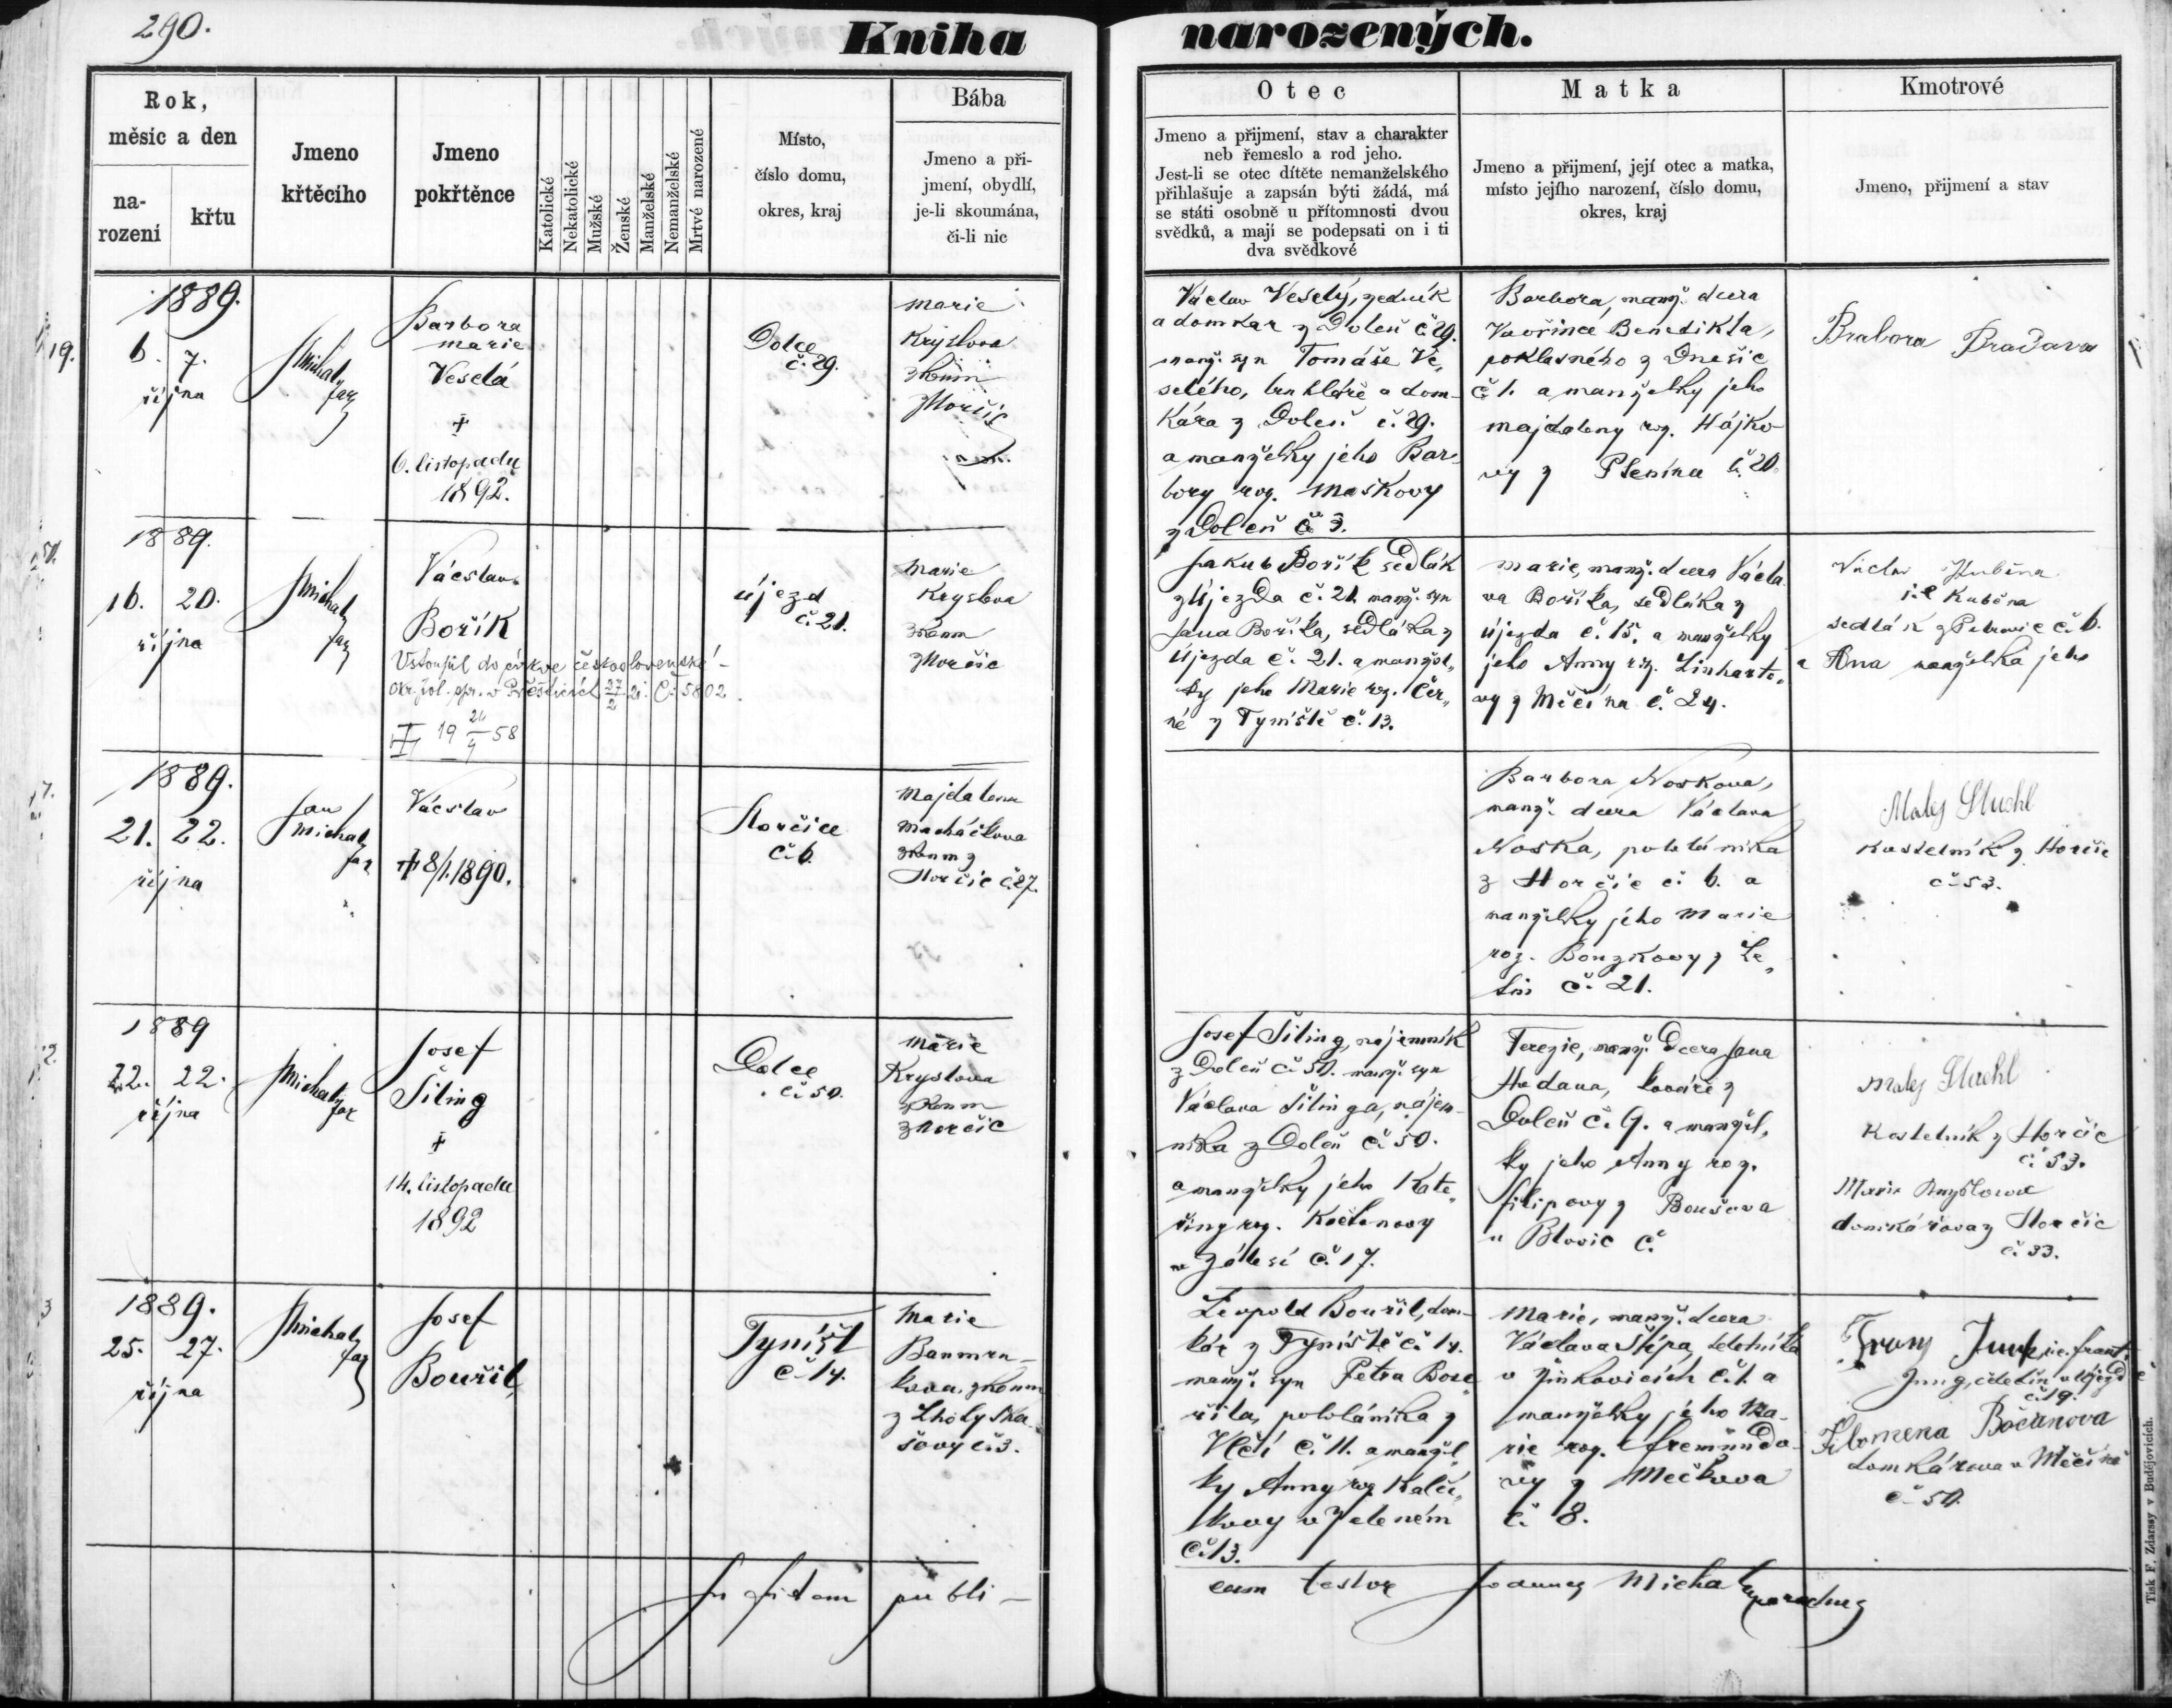 290.
Kniha narozených.
Rok,
měsíc a den
na-
rození
křtu
Jmeno
křtěcího
Jmeno
pokřtěnce
Katolické
Nekatolické
Mužské
Ženské
Manželské
Nemanželské
Mrtvé narozené
Místo,
číslo domu,
okres, kraj
Bába
Jmeno a při-
jmení, obydlí,
je-li skoumána,
či-li nic
Otec
Jmeno a přijmení, stav a charakter
neb řemeslo a rod jeho.
Jest-li se otec dítěte nemanželského
přihlašuje a zapsán býti žádá, má
se státi osobně u přítomnosti dvou
svědků, a mají se podepsati on i ti
dva svědkové
Matka
Jmeno a přijmení, její otec a matka,
místo jejího narození, číslo domu,
okres, kraj
Kmotrové
Jmeno, přijmení a stav
19.
1889.
6. 7.
října
Michal
far
Barbora
marie
Veselá
†
6. listopadu
1892.
Dolce
č. 29.
marie
Kryslova
zkoum
z Horšic
Václav Veselý, zedník
a domkar z Doleň č 29.
manž. syn Tomáše Ve„
selého, truhláře a dom-
kára z Doleň č. 29.
a manželky jeho Bar-
bory roz. Maškovy
z Doleň č 3.
Barbora, manž. dcera
Vavřince Benedikta,
poklasného z Dnešic
č 1. a manželky jeho
majdaleny roz. Hájko-
vy z Ptenína č. 20.
Brabora Braďava
1889.
16. 20.
října
Michal
far
Václav
Bořík
Vstoupil do církve československé -
okr. pol. spr. v Přešticích 27/2 21. Č. 5802.
19 24/4 58
Újezd
č. 21.
Marie
Kryslova
zkoum
z Horšic
Jakub Bořík sedlák
z Újezda č. 21. manž. syn
Jana Boříka, sedláka z
Újezda č. 21. a manžel„
ky jeho Marie roz. Čer„
né z Tyniště č. 13.
Marie, manž. dcera Václa-
va Boříka, sedláka z
Újezda č. 15. a manželky
jeho Anny roz. Linharto„
vy z Měčína č. 24.
Václav Kuběna
i.e Kuběna
sedlák z Petrovic č. 6.
a Ana manželka jeho
1889.
21. 22.
října
Jan
Michal
far
Václav
† 8/1.1890.
Horčice
č. 6.
Majdalena
Macháčkova
zkoum z
Horčic č. 27.
Barbora Noskova,
manž. dcera Václava
Noska, pololáníka
z Horčic č. 6. a
manželky jeho Marie
roz. Bouzkovy z Le„
tin č. 21.
Matěj Stuchl
kostelník z Horčic
č. 53.
1889
22. 22.
října
Michal
far
Josef
Šiling
†
14. listopadu
1892
Dolce
č. 50.
Marie
Kryslova
zkoum
z Horčic
Josef Šiling, nájemník
z Doleň č 50. manž. syn
Václava Šilinga, nájem-
níka z Doleň č. 50.
a manželky jeho Kate„
řiny roz.
č. 17.
Terezie, manž. dcera Jana
Hodana, kováře z
Doleň č. 9. a manžel„
ky jeho Anny roz.
Filipovy z Boušova
u Blovic č.
Matěj Stuchl
Kostelník z Horčic
č. 53.
Marie
domkářova z Horčic
č. 33.
1889.
25. 27.
října
Michal
far
Josef
Bouřil
Tyništ
č 14.
Marie
Bauman-
kova, zkoum
z Lhoty Ska-
šovy č. 3.
Leopold Bouřil, dom-
kář z Tyniště č. 14.
manž. syn Petra Bou„
řila, pololáníka z
Vlčí č. 11. a manžel„
ky Anny roz. Kalči„
kovy v Zeleném
č. 13.
Marie, manž. dcera
Václava Šípa,
v Žinkovicích č. 1. a
manželky jeho Ma-
rie roz.
vy z Mečkova
č. 8.
Franz Jung, i.e. frant.
Jung, čeledín v Újezdě
č. 19.
Filomena Bočanova
domkářova v Měčíně
č. 50.
In fidem publi-
cam testor Joannes Michal parochus
Tisk F. Zdarssy v Budějovicích.